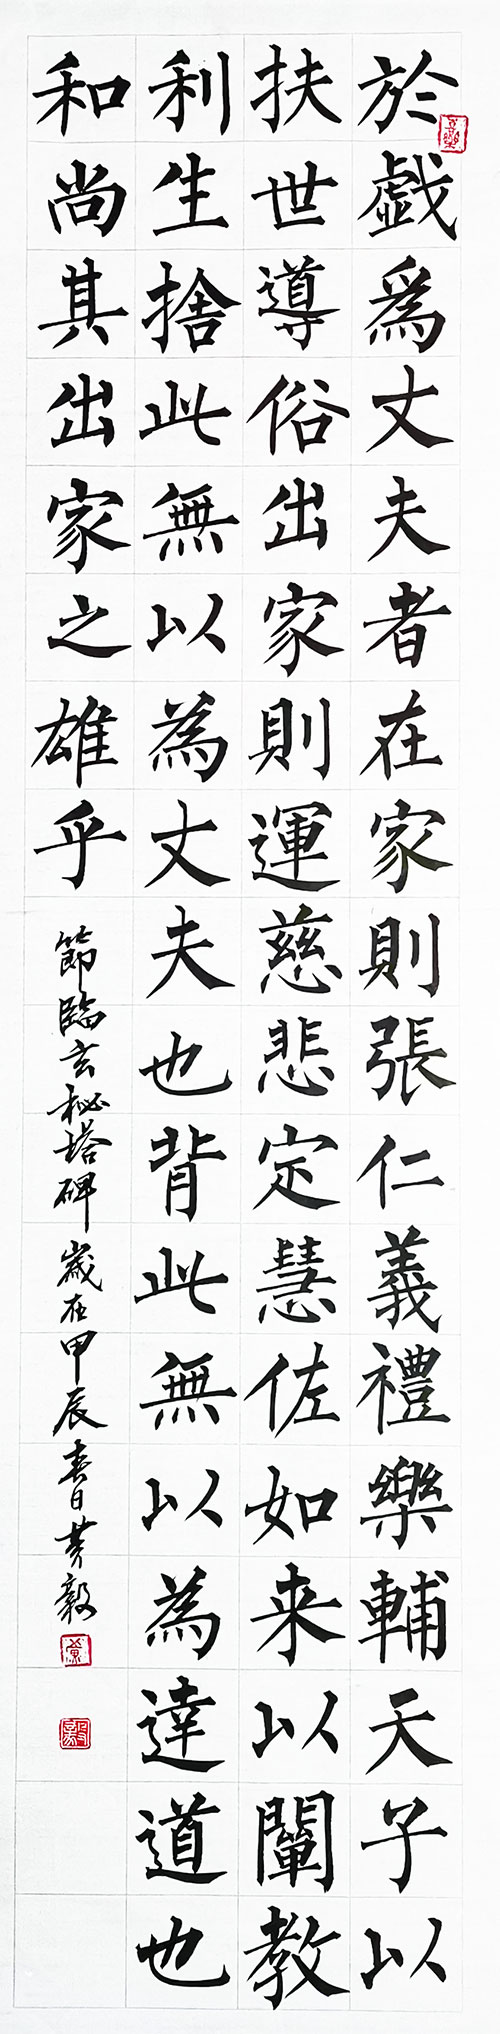 於戯為丈夫者在家則張仁義禮樂輔天子以
扶世導俗出家則運慈悲定慧佐如来以闡教
利生捨此無以為丈夫也背此無以為達道也
和尚其出家之雄乎
節臨玄秘塔碑 歲在甲辰春日黄毅